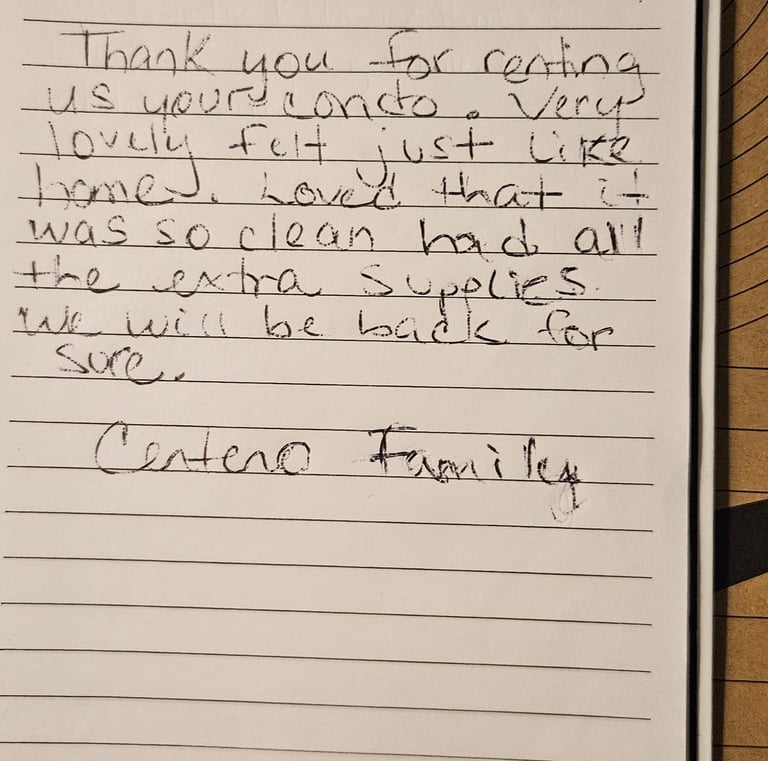 Thank you for renting
us your condo. Very
lovely felt just like
home. Loved that it
was so clean had all
the extra supplies.
We will be back for
sure.
Centeno Family